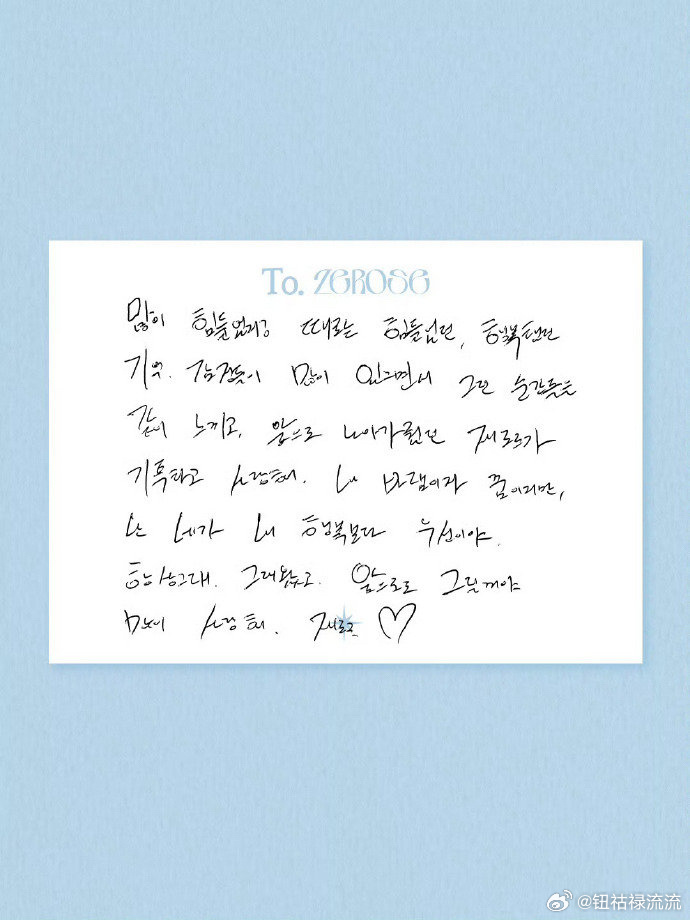 To. ZEROSE
많이 힘들었고 때로는 힘들었던, 행복했던
기억. 감정들이 많이 있으면서 그런 순간들을
같이 느끼고, 앞으로 나아가 제로즈가
사랑해. 내 바램이자 꿈이지만,
난 네가 내 행복보다 우선이야.
항상 그래. 그래왔고. 앞으로도 그럴꺼야
많이 사랑해. 제로즈 ♡
@钮祜禄流流